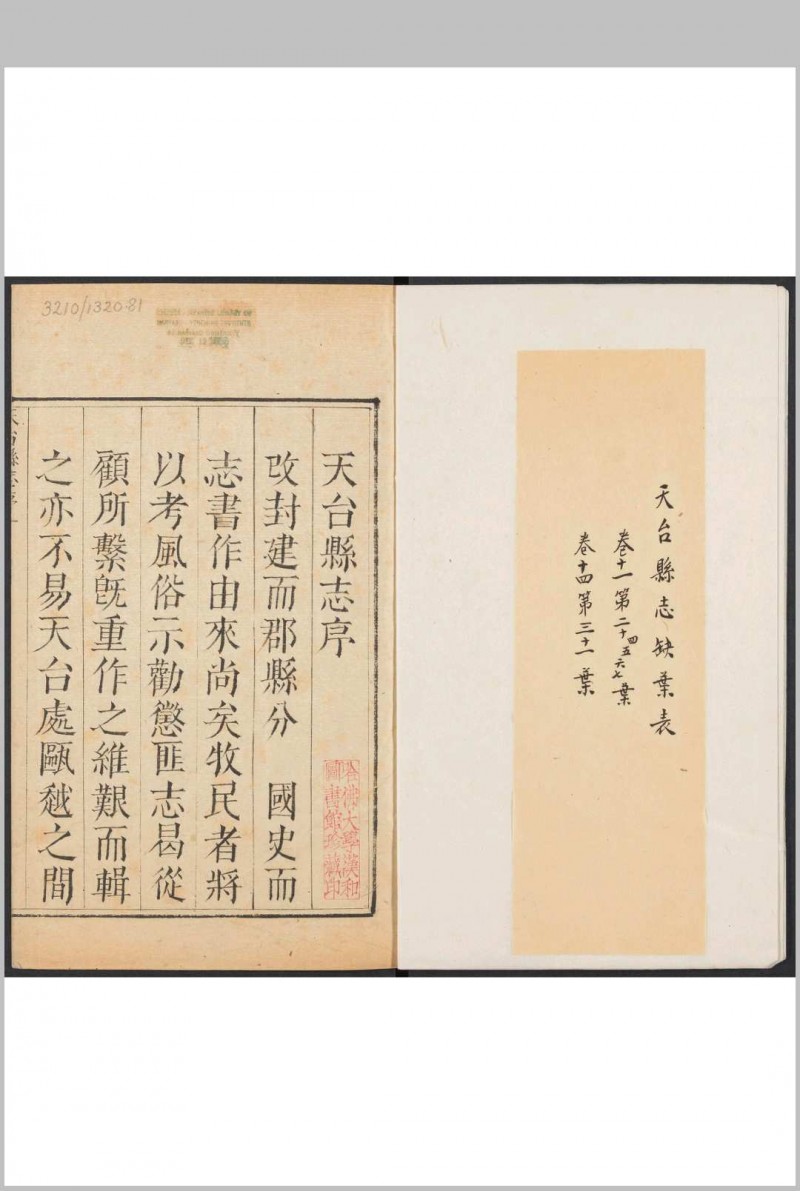 天台縣志缺葉表
卷十一第二十四五六七葉
卷十四第三十一葉
3210/1320.81
天台縣志序
改封建而郡縣分　國史而
志書作由來尚矣牧民者將
以考風俗示勸懲匪志曷從
顧所繫旣重作之維艱而輯
之亦不易天台處甌越之間
哈佛大學漢和
圖書館珍藏印
天台縣志序